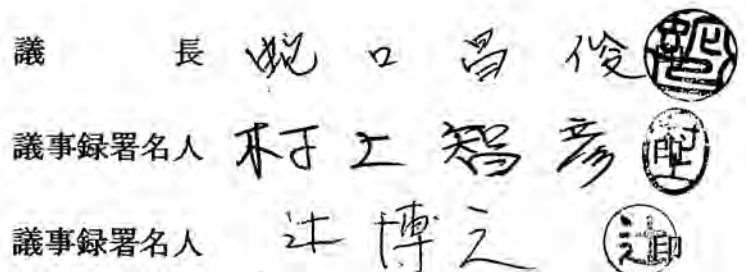 議長 蛻口昌俊
議事録署名人 村上智彦 村上
議事録署名人 辻博之 辻 印